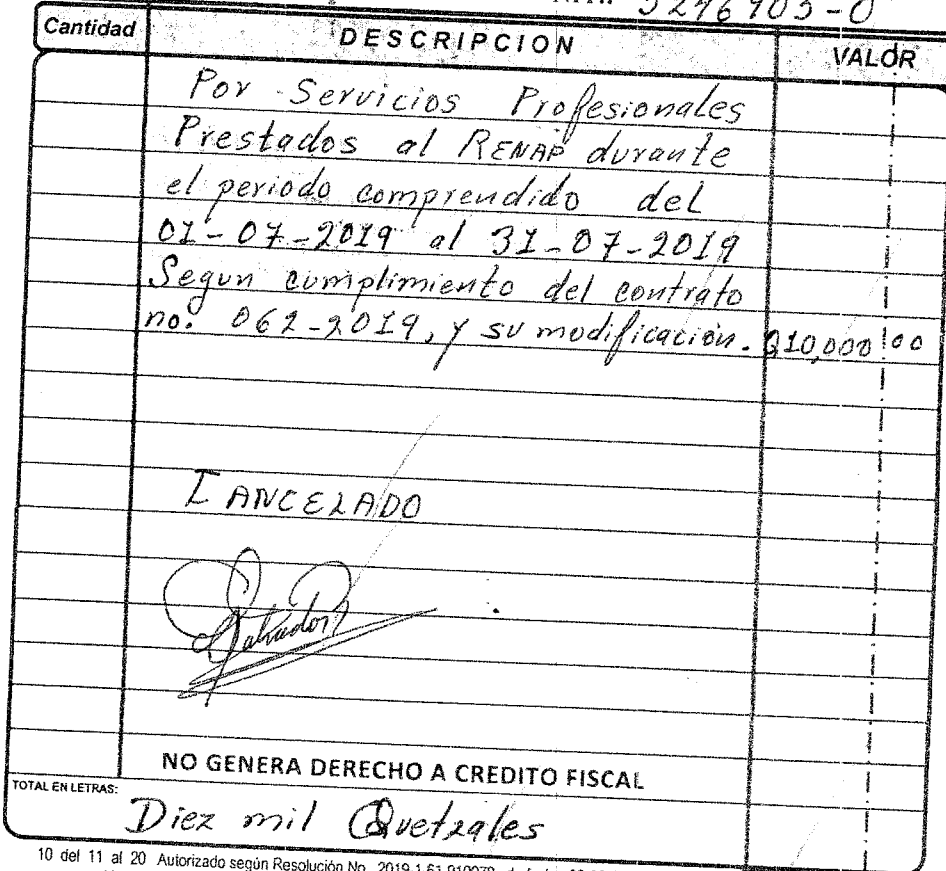 5296905-0
Cantidad DESCRIPCION VALOR
Por Servicios Profesionales
Prestados al RENAP durante
el periodo comprendido del
01-07-2019 al 31-07-2019
Segun cumplimiento del contrato
no. 062-2019, y su modificación. Q10,000 00
CANCELADO
Salvador
NO GENERA DERECHO A CREDITO FISCAL
TOTAL EN LETRAS:
Diez mil Quetzales
10 del 11 al 20 Autorizado según Resolución No. 2019-1-61-910078